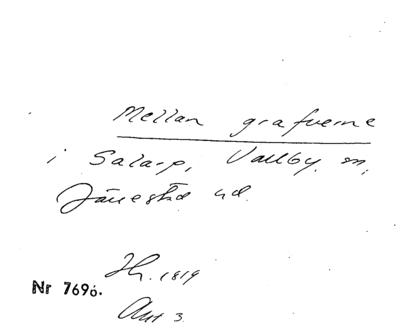 Mellan grafverne
i Salarp, Vallby sn,
Järrestad hd.
Hr. 1819
Nr 7696.
Akt 3